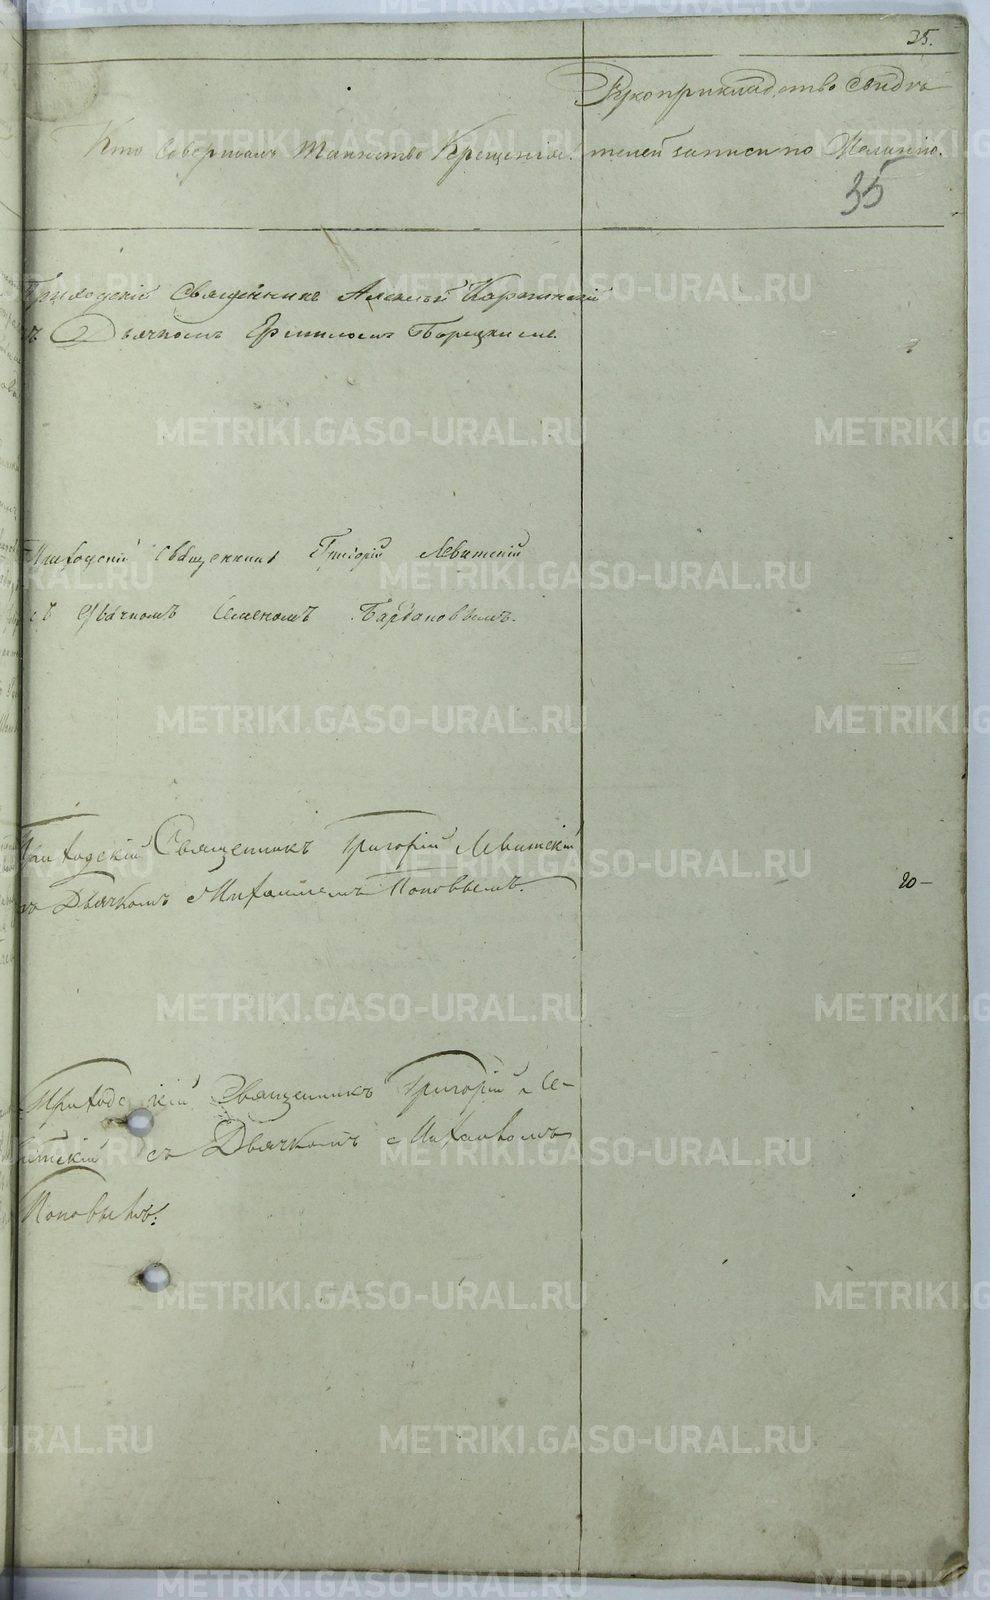 35.
Кто Совершалъ Таинство Крещенія.
Рукоприкладство свидѣ-
телей записи по Желанію.
35
Приходскій Священникъ Алексѣй
съ Дьячкомъ Ермиломъ
Приходскій Священникъ Григорій Левитскій
съ Дьячкомъ Семеномъ
Приходскій Священникъ Григорій Левитскій
съ Дьячкомъ Михаиломъ Поповымъ.
20 —
Приходскій Священникъ Григорій Ле-
витскій съ Дьячкомъ Михаиломъ
Поповымъ.
METRIKI.GASO-URAL.RU